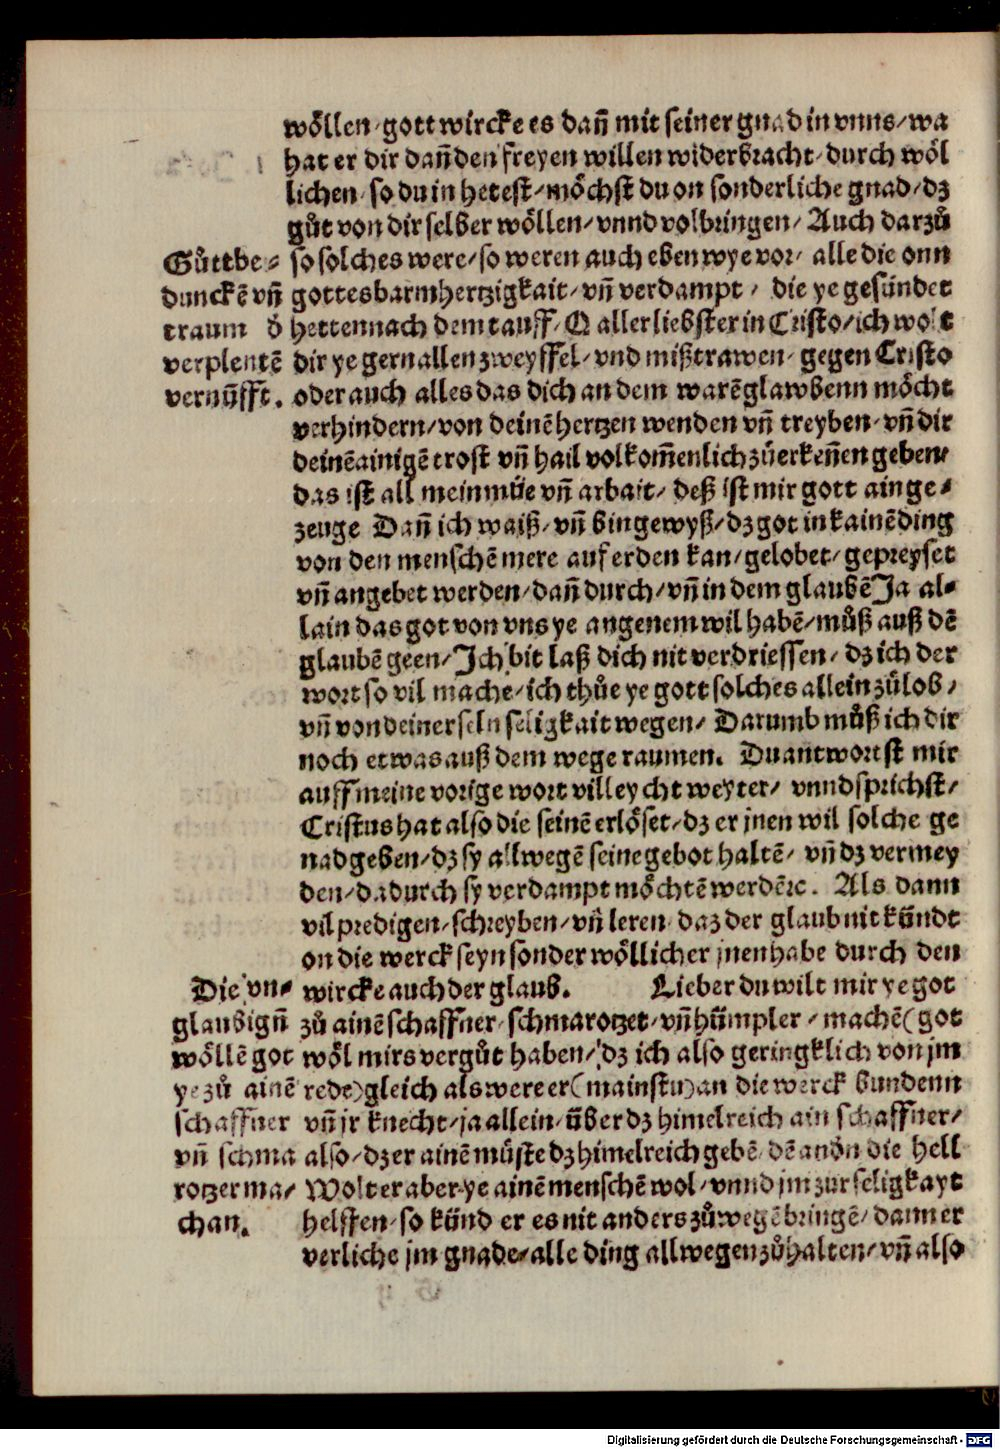 wöllen/gott wircke es dañ mit seiner gnad in vnns/wa
hat er dir dañ den freyen willen widerbracht/durch wöl
lichen/so du in hetest/möchst du on sonderliche gnad/dz
gůt von dir selber wöllen/vnnd volbringen/Auch darzů
so solches were/so weren auch eben wye vor/alle die onn
gottes barmhertzigkait/vñ verdampt/die ye gesündet
hetten nach dem tauff/O aller liebster in Cristo/ich wolt
dir ye gern allen zweyffel/vnd mißtrawen/gegen Cristo
oder auch alles das dich an dem warē glawbenn möcht
verhindern/von deinē hertzen wenden vñ treyben/vñ dir
deinē ainigē trost vñ hail volkom̃enlich zůerkeñen geben/
das ist all mein müe vñ arbait/deß ist mir gott ain ge⸗
zeuge Dañ ich waiß/vñ bin gewyß/dz got in kainē ding
von den menschē mere auf erden kan/gelobet/gepreyset
vñ angebet werden/dañ durch/vñ in dem glaubē Ja al⸗
lain das got von vns ye angenem wil habē/můß auß dē
glaubē geen/Ich bit laß dich nit verdriessen/dz ich der
wort so vil mache/ich thůe ye gott solches allein zů lob/
vñ von deiner seln seligkait wegen/Darumb můß ich dir
noch etwas auß dem wege raumen. Du antwortst mir
auff meine vorige wort villeycht weyter/vnnd sprichst/
Cristus hat also die seinē erlöset/dz er jnen wil solche ge
nad geben/dz sy allwegē seine gebot haltē/vñ dz vermey
den/dadurch sy verdampt möchtē werdēꝛc. Als dann
vil predigen/schreyben/vñ leren/daz der glaub nit kündt
on die werck seyn sonder wöllicher jnen habe durch den
wircke auch der glaub. Lieber du wilt mir ye got
zů ainē schaffner/schmarotzet/vñ hümpler/machē(got
wöl mirs vergůt haben/dz ich also geringklich von jm
rede)gleich als were er(mainstu)an die werck bundenn
vñ jr knecht/ja allein/über dz himelreich ain schaffner/
also/dz er ainē müste dz himelreich gebē/dē andn̄ die hell
Wolt er aber ye ainē menschē wol/vnnd jm zur seligkayt
helffen/so künd er es nit anders zůwegē bringē/dann er
verliche jm gnade/alle ding allwegen zůhalten/vñ also
Gůttbe⸗
dunckē vñ
traum d̄
verplentē
vernüfft.
Die vn⸗
glaubigñ
wöllē got
ye zů ainē
schaffner
vñ schma
rotzer ma/
chan.
Digitalisierung gefördert durch die Deutsche Forschungsgemeinschaft - DFG